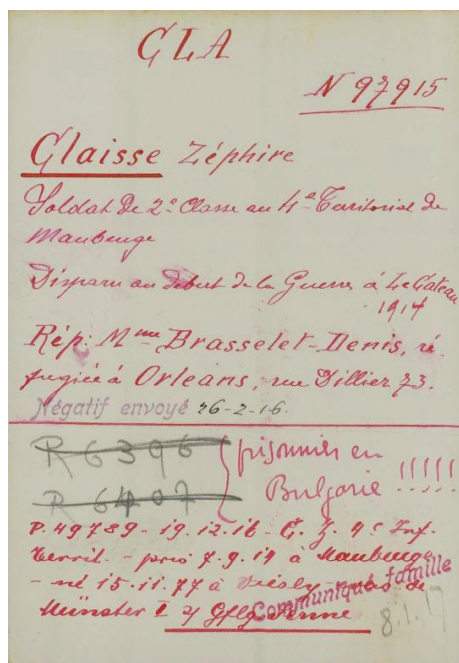 GLA
N 97915
Glaisse Zéphire
Soldat de 2e Classe au 4e Territorial de
Maubeuge
Disparu au début de la Guerre à Le Cateau
1914
Rép: Mme Brasselet-Denis, ré
fugiée à Orléans, rue Dillier 73.
Négatif envoyé 26-2-16.
R 6396
R 6407
prisonnier en
Bulgarie !!!!!
P. 49789 - 19.12.16 - G. Z. 4e Inf.
territ. - pris 7.9.14 à Maubeuge
- né 15.11.77 à - de
Münster I / Gflg
Communiqué famille
8.1.17